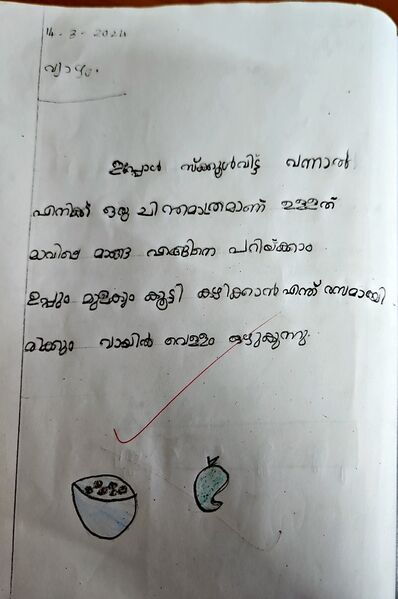 14-3-2024
വ്യാഴം.
ഇപ്പോൾ സ്ക്കൂൾവിട്ട് വന്നാൽ
എനിക്ക് ഒരു ചിന്തമാത്രമാണ് ഉള്ളത്
മാവിലെ മാങ്ങ എങ്ങിനെ പറിയ്ക്കാം
ഉപ്പും മുളകും കൂട്ടി കഴിക്കാൻ എന്ത് രസമായി
രിക്കും വായിൽ വെള്ളം ഒഴുകുന്നു.